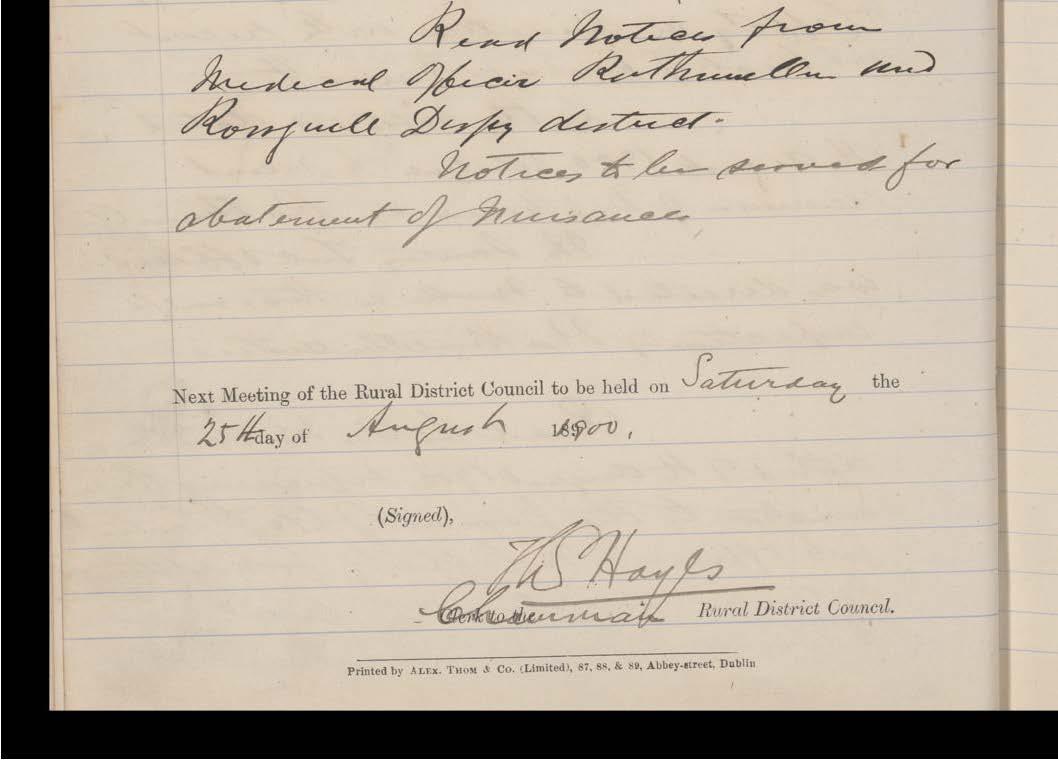 Read Notices from
Medical Officer Rathmullen and
Rossguill Dispy district.
Notices to be served for
abatement of Nuisances
Next Meeting of the Rural District Council to be held on Saturday the
25th day of August 1900.
(Signed),
Hayes
Chairman Rural District Council.
Printed by ALEX. THOM & Co. (Limited), 87, 88, & 89, Abbey-street, Dublin